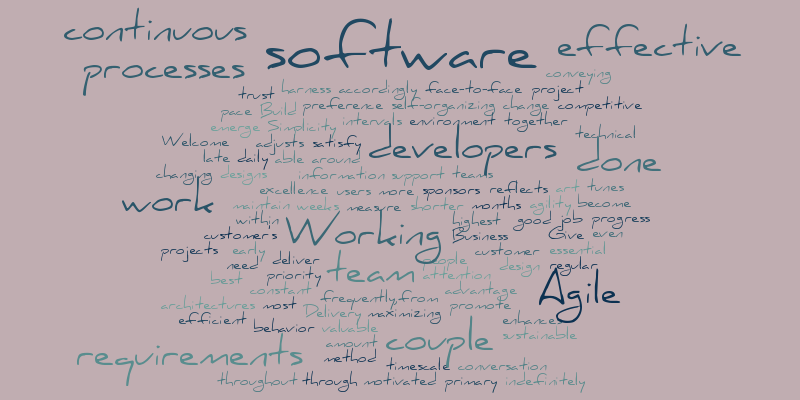 continuous software effective
processes conveying
trust harness accordingly face-to-face project
pace Build preference self-organizing change competitive
emerge Simplicity intervals environment together
Welcome adjusts satisfy developers technical
late daily able around done
changing designs information support teams
excellence users more sponsors reflects art tunes
work maintain weeks measure shorter months agility become
within Working highest good job progress
customers Business Give even
projects early customer essential
need deliver people design regular
best priority team attention
constant frequently from advantage Agile
architectures most Delivery maximizing promote
efficient behavior valuable enhances
requirements amount couple sustainable
method timescale conversation
throughout through motivated primary indefinitely